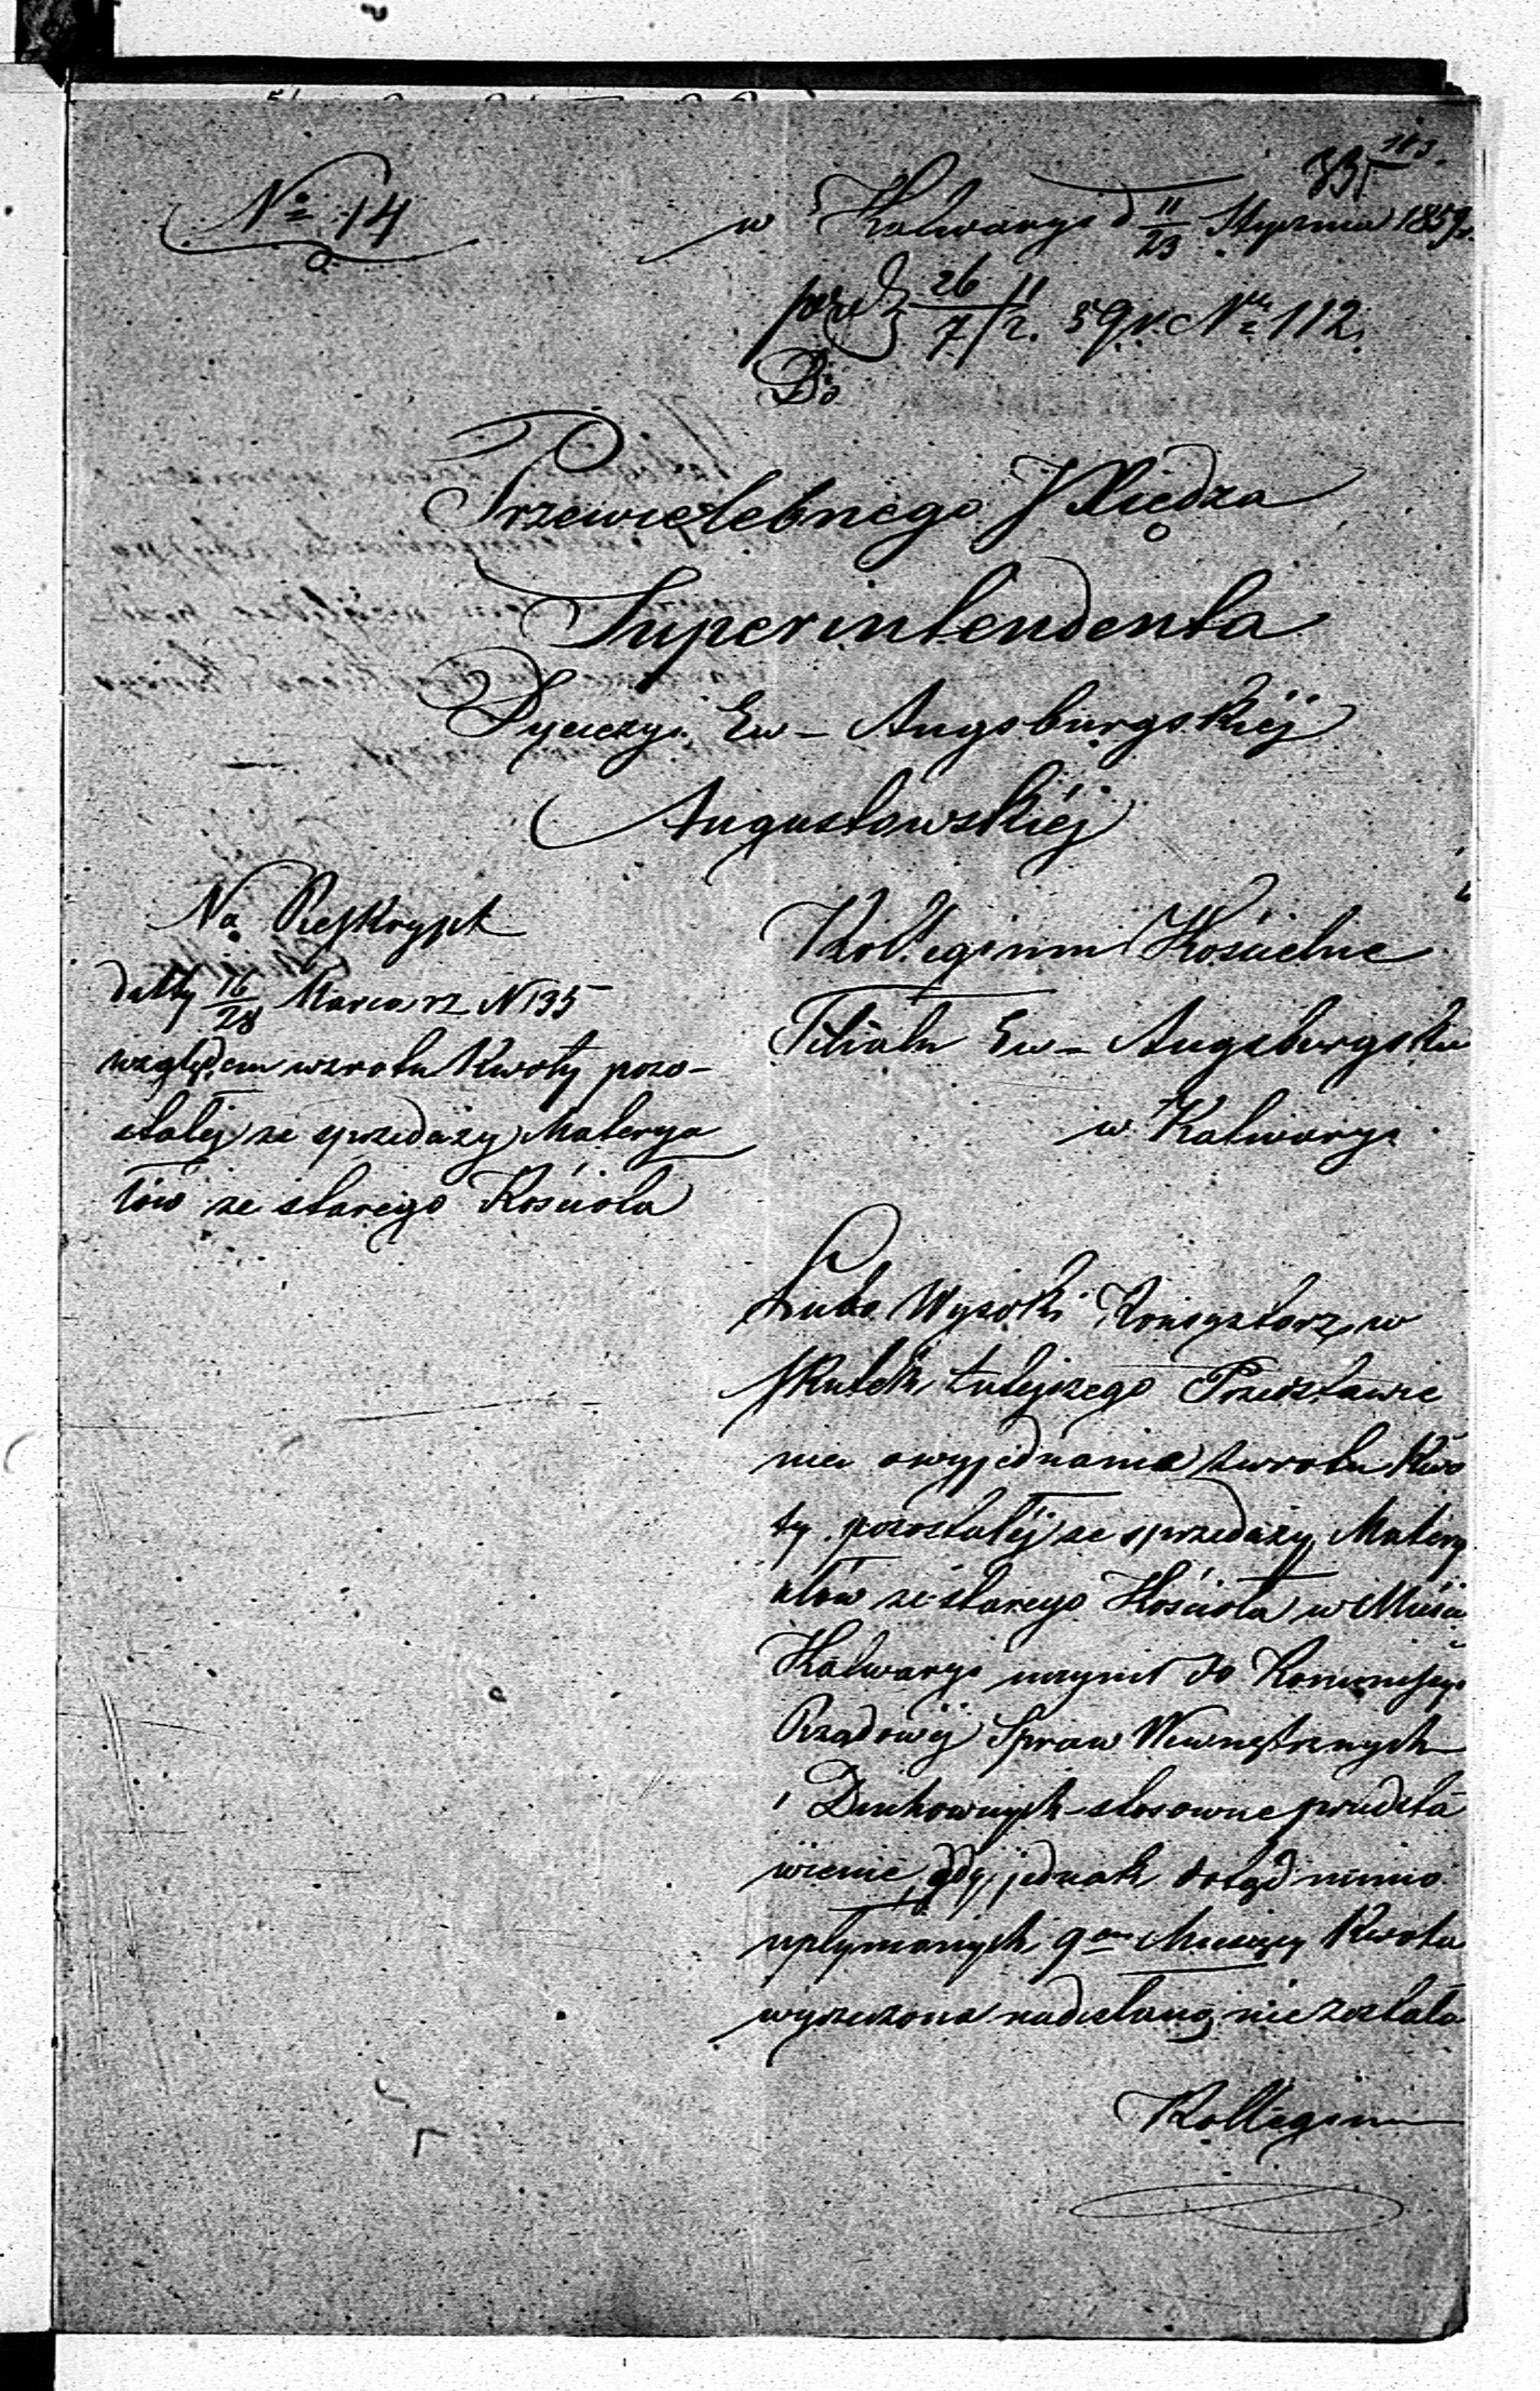 № 14
w Kalwaryi d 11/23 Stycznia 1859 r.
26/7 II/2. 59 r. № 112.
Do
Przewielebnego JXiędza
Superintendenta
Dyecezyi Ew – Augsburgskiéj
Augustowskiéj
Na Reskrypt
datty 16/28 Marca r z N 135
względem wzrotu Kwoty pozo-
stałej ze sprzedaży Materya
łów ze starego Kościoła
Kollegium Kościelne
Filialn Ew – Augsburgskie
w Kalwaryi
Lubo Wysoki Konsystorz w
skutek tutejszego Przedstawie
nia o wyjednania zwrotu Kwo
ty pozostałéj ze sprzedaży Matery
ałów ze starego Kościoła w Mieście
Kalwaryi uczynił do Kommissyi
Rządowéj Spraw Wewnętrznych
i Duchownych stosowne przedsta
wienie, gdy jednak dotąd mimo
upłynionych 9 Miesięcy Kwota
wyrzeczona nadesłaną nie została
Kollegium